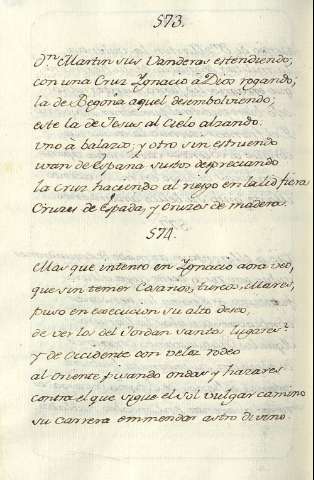 573.
Dn. Martin sus Vanderas estendiendo;
con una Cruz Ignacio a Dios rogando;
la de Begoña aquel desembolviendo;
este la de Jesus al Cielo alzando.
uno à balazos; y otro sin estruendo
de España
la Cruz haciendo al riesgo en la lid fiera
Cruzes de Espada, y cruzes de madera.
574.
Mas que intento en Ignacio aora veo,
que sin temer Cosarios, turcos, Mares,
puso en execucion su alto deseo,
de ver los del Jordan santos lugares
y de Occidente con veloz rodeo
al Oriente ondas y hazares
contra el que sigue el Sol vulgar camino
su Carrera emmendar astro divino.